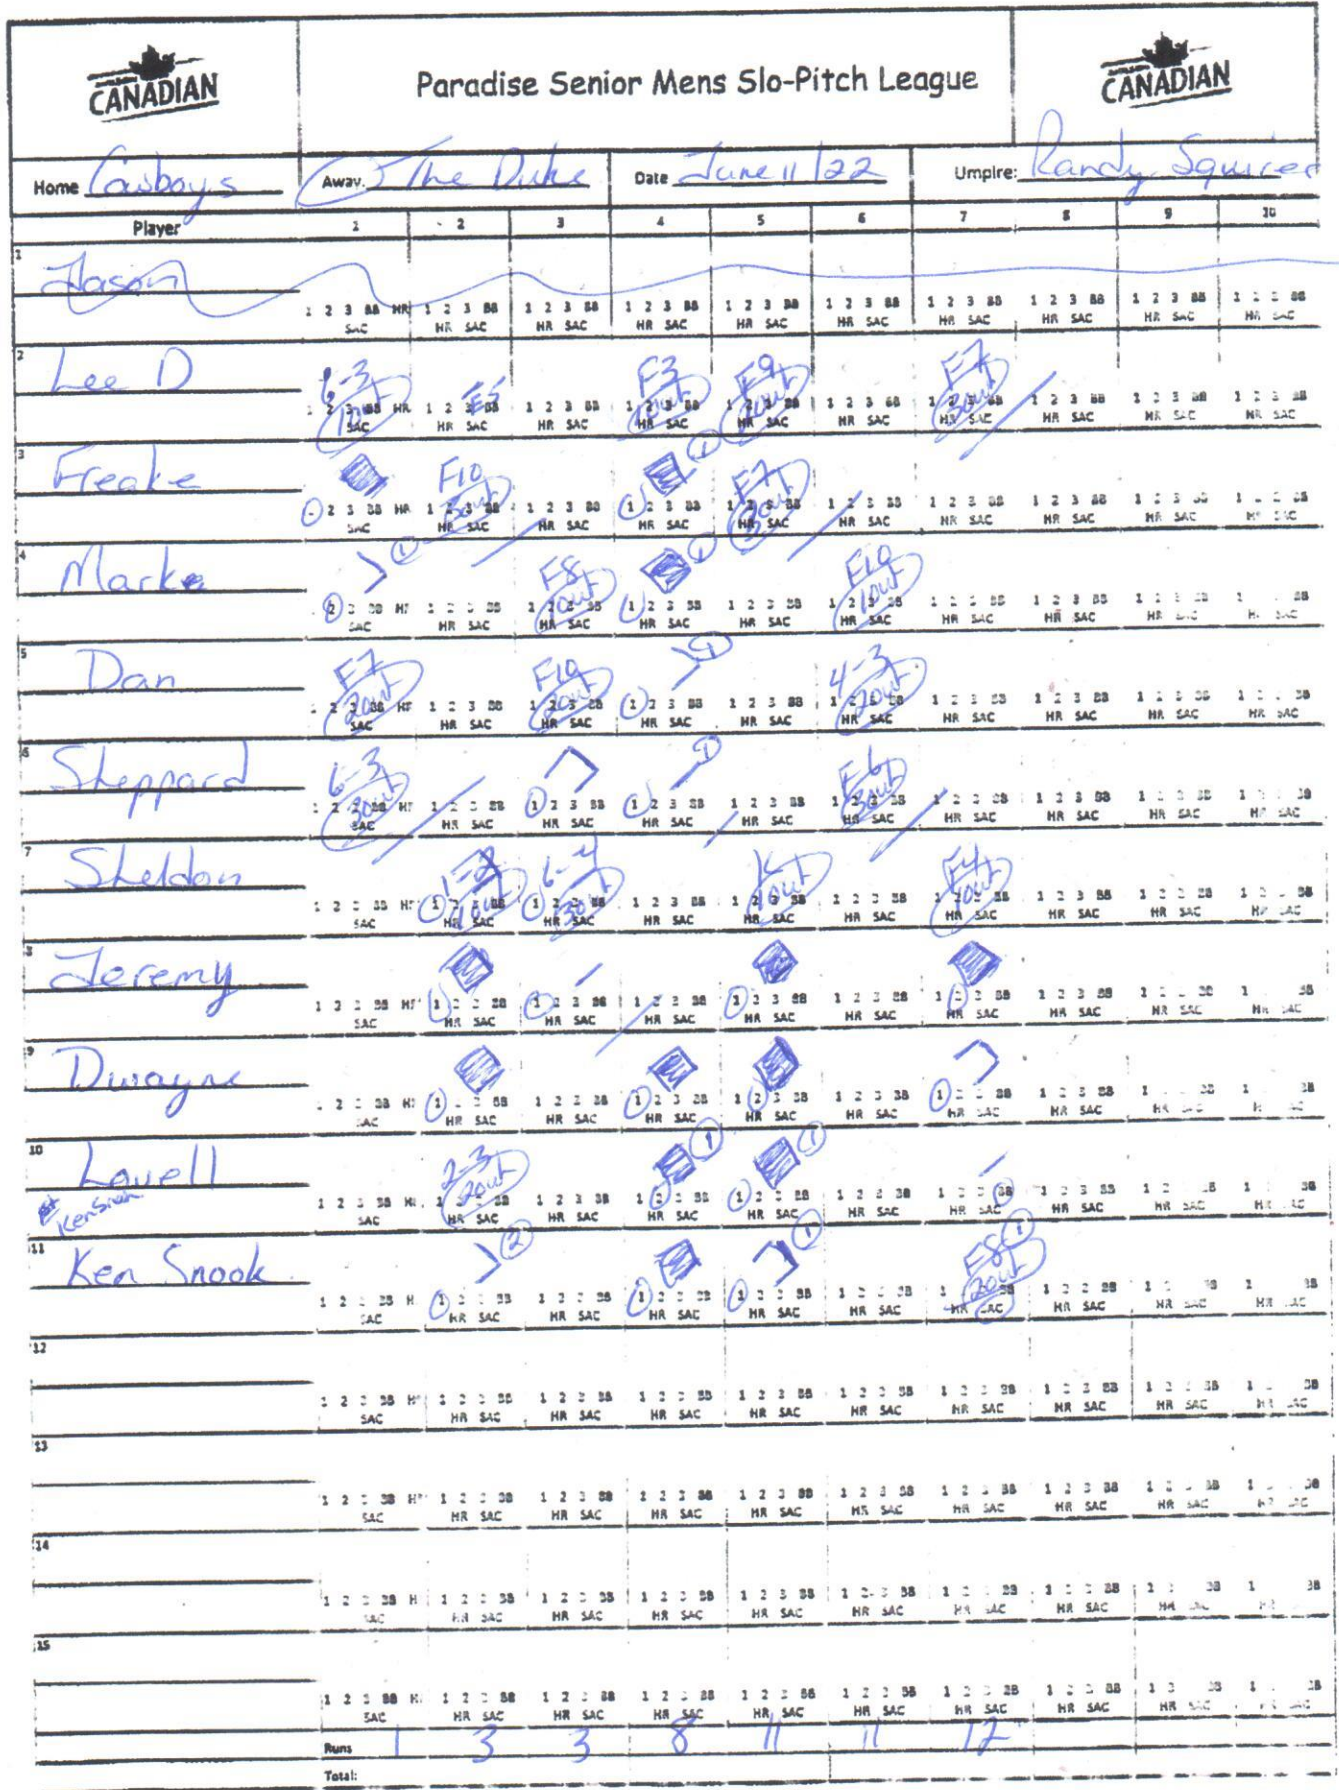 CANADIAN
Paradise Senior Mens Slo-Pitch League
CANADIAN
Home Cowboys Away. The Duke Date June 11/22 Umpire: Randy Squires
Player 1 2 3 4 5 6 7 8 9 10
1 Jason
1 2 3 BB HR 1 2 3 BB 1 2 3 BB 1 2 3 BB 1 2 3 BB 1 2 3 BB 1 2 3 BB 1 2 3 BB 1 2 3 BB 1 2 3 BB
SAC HR SAC HR SAC HR SAC HR SAC HR SAC HR SAC HR SAC HR SAC HR SAC
2 Lee D 6-3 1out F3 1out F9 2out F7 3out
3 Freake F10 3out 1 F7 3out
4 Marke 1 F8 1out 1 F10 1out
5 Dan F7 2out F10 2out 1 4-3 2out
6 Sheppard 6-3 3out 1 F-6 3out
7 Sheldon 1-2 1out 6-4 3out K 1out F4 1out
8 Jeremy
9 Dwayne
10 Lovell 2-3 2out 1 1
Ken Snook
11 Ken Snook 2 1 F8 2out 1
12
13
14
15
Runs 1 3 3 8 11 11 12
Total: